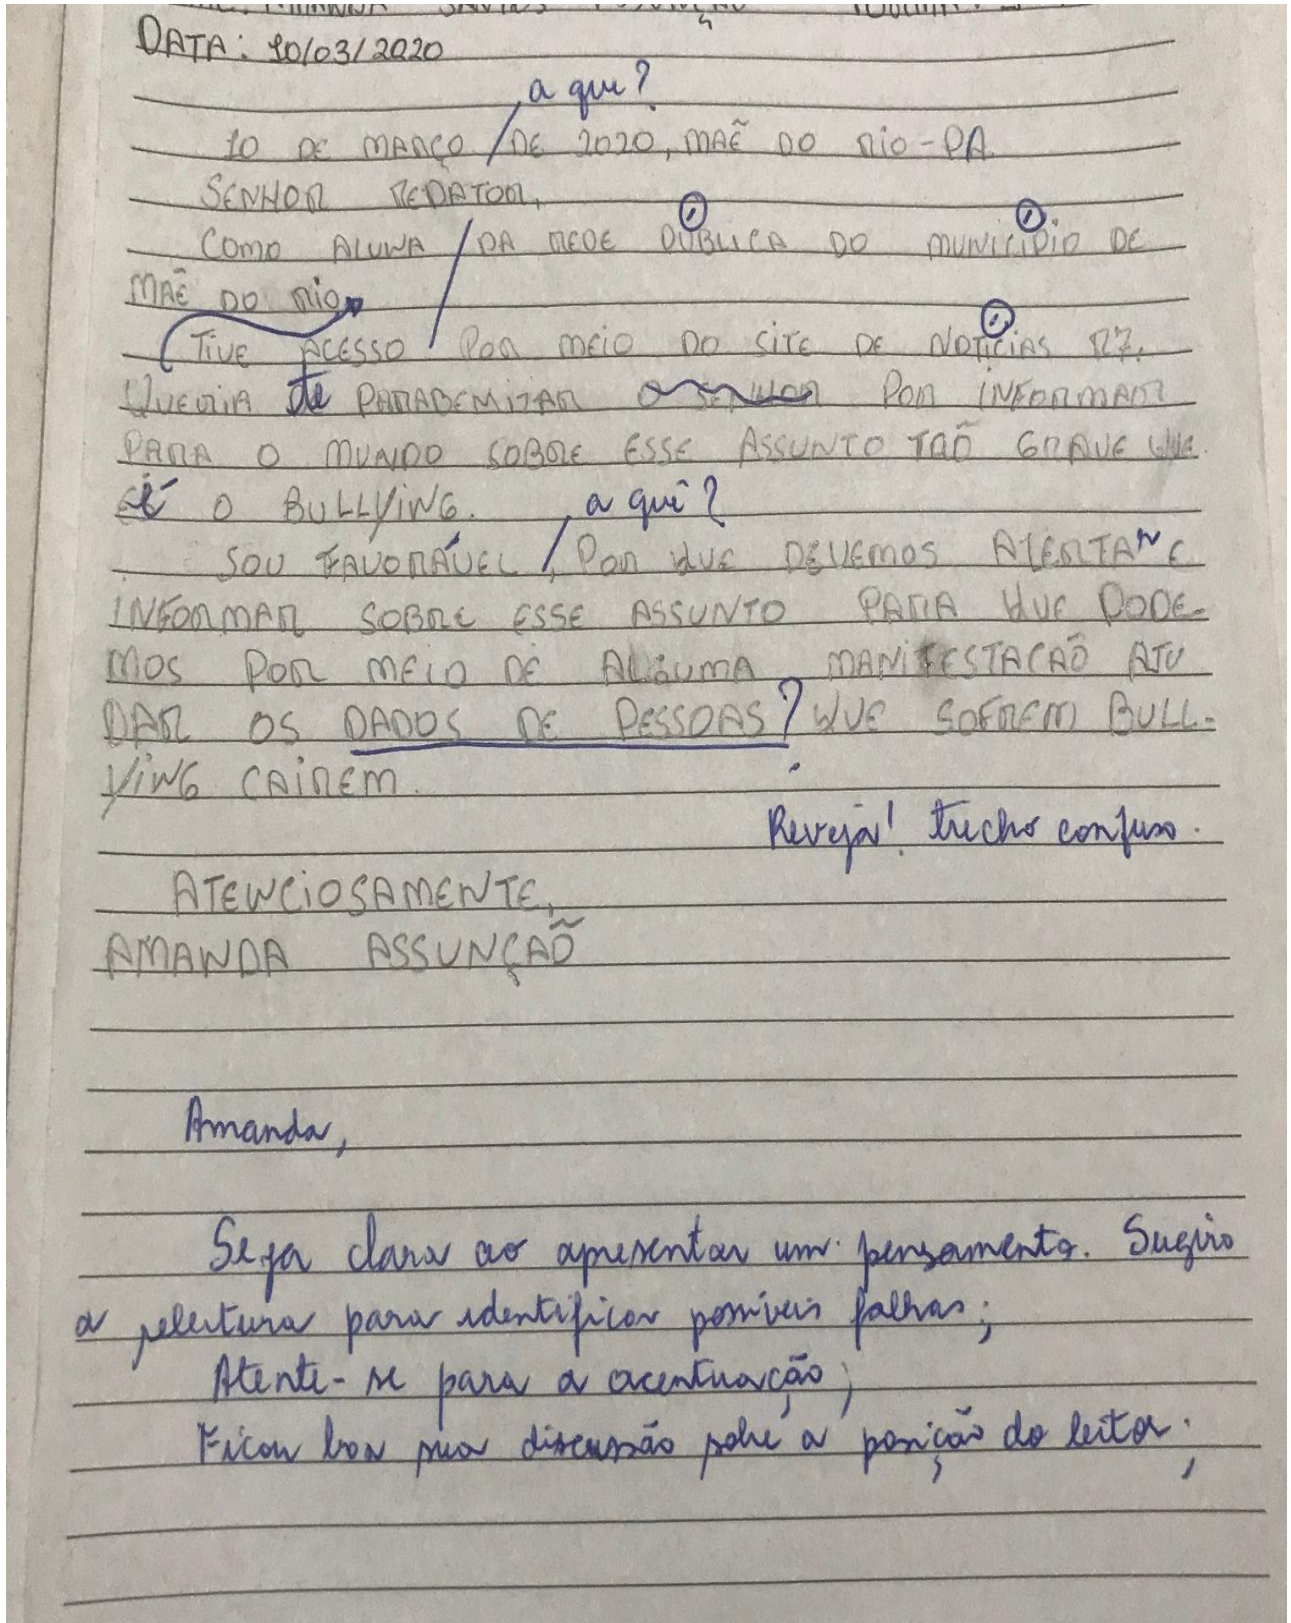 DATA: 10/03/2020
a que?
10 DE MARÇO DE 2020, MAẼ DO RIO-PA.
SENHOR REDATOR,
COMO ALUNA DA REDE PÚBLICA DO MUNICÍPIO DE
MAẼ DO RIO
TIVE ACESSO POR MEIO DO SITE DE NOTÍCIAS R7.
QUERIA te PARABEMIZAR O SENHOR POR INFORMAR
PARA O MUNDO SOBRE ESSE ASSUNTO TAÕ GRAVE QUE
é O BULLYING. a quê?
SOU FAVORÁVEL, POR QUE DEVEMOS ALERTAR E
INFORMAR SOBRE ESSE ASSUNTO PARA QUE PODE-
MOS POR MEIO DE ALGUMA MANIFESTACAÕ AJU
DAR OS DADOS DE PESSOAS? QUE SOFREM BULL-
YING CAIREM.
Reveja! trecho confuso.
ATENCIOSAMENTE,
AMANDA ASSUNÇAÕ
Amanda,
Seja clara ao apresentar um pensamento. Sugiro
a releitura para identificar possíveis falhas;
Atente-se para a acentuação;
Ficou boa sua discussão sobre a posição do leitor;